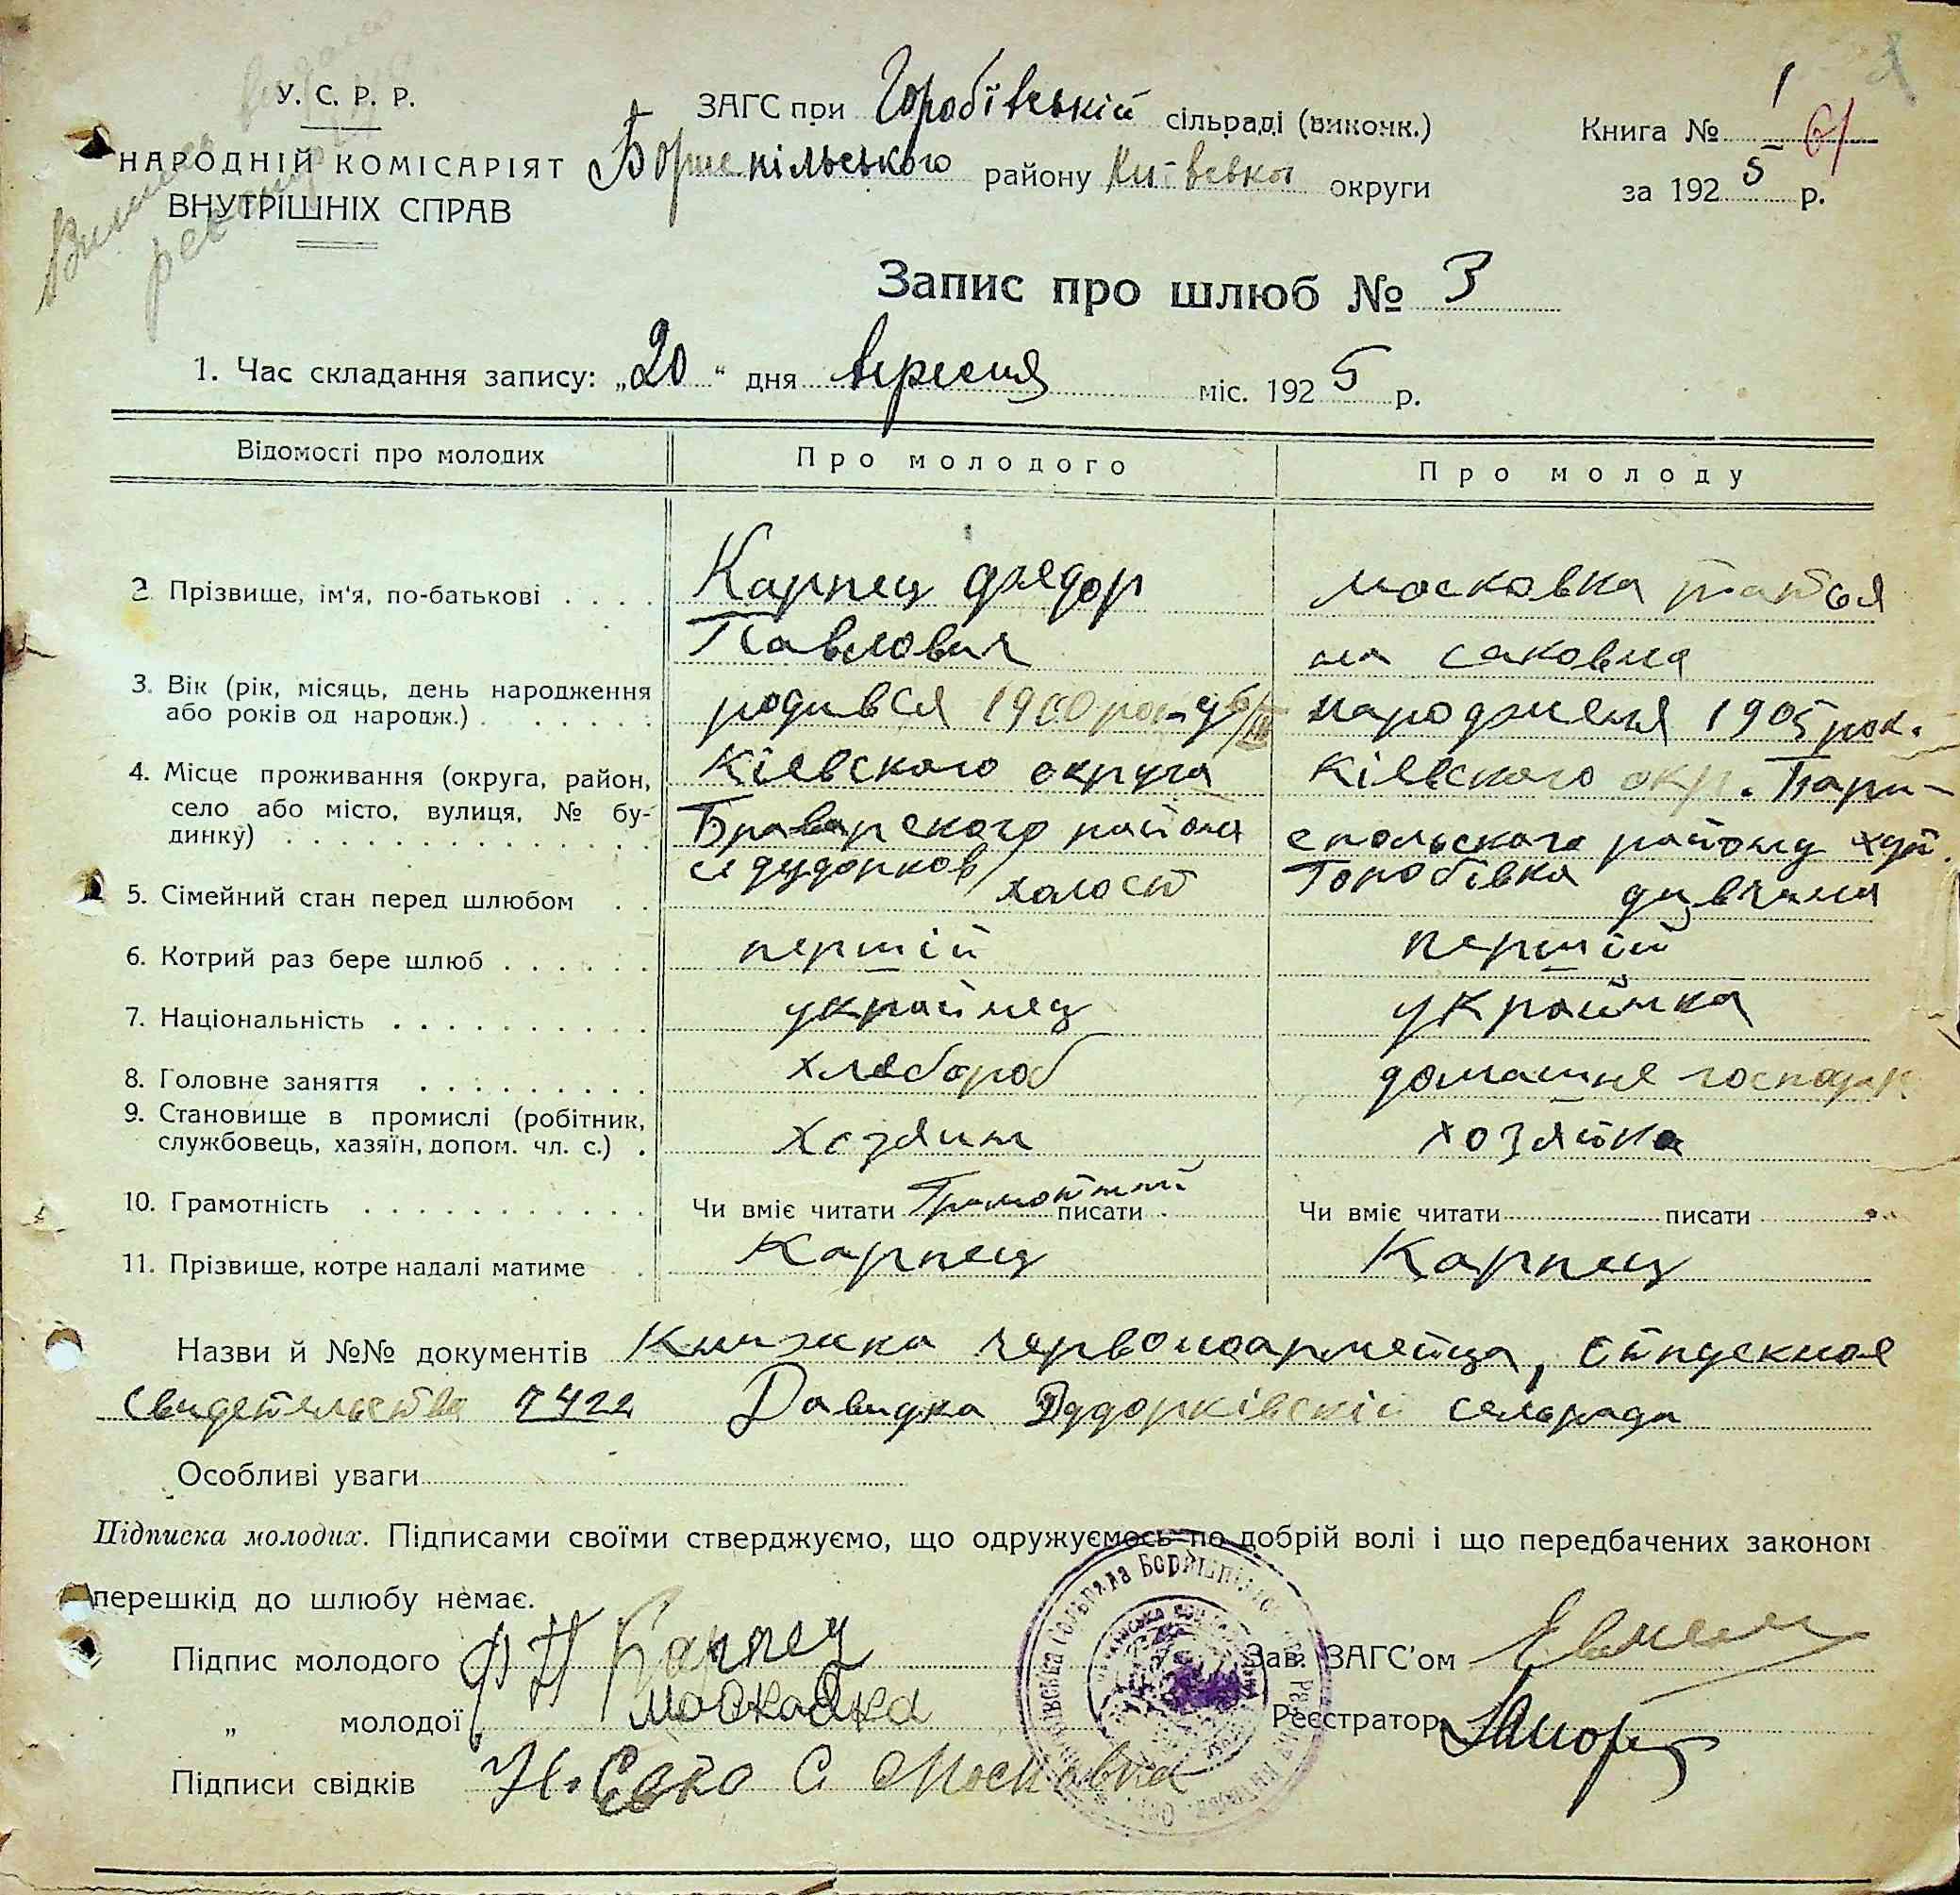 У. С. Р. Р.
НАРОДНІЙ КОМІСАРІЯТ
ВНУТРІШНІХ СПРАВ
ЗАГС при Горобівській сільраді (виконк.)
Боришпільського району Київської округи
Книга № 1 61
за 1925 р.
Запис про шлюб № 3
1. Час складання запису: „20“ дня вересня міс. 1925 р.
Відомості про молодих Про молодого Про молоду
2 Прізвище, ім'я, по-батькові . . . . Карпец Фіедор Московка татья
Павлович на саковна
3. Вік (рік, місяць, день народження родився 1900 народження 1905 рок.
або років од народж.) . . . . . .
4. Місце проживання (округа, район, Кіевского округа Кіевского окр. Бари-
село або місто, вулиця, № бу- Браварского района спольского району хут.
динку) . . . . . . . . . . . . . . . с дудорков Горобівка
5. Сімейний стан перед шлюбом . . холост дивчина
6. Котрий раз бере шлюб . . . . . . першій першій
7. Національність . . . . . . . . . . україинец україинка
8. Головне заняття . . . . . . . . . хлебороб домашне господар
9. Становище в промислі (робітник,
службовець, хазяїн, допом. чл. с.) . хозяин хозяйка
10. Грамотність . . . . . . . . . . . . Чи вміє читати Грамотний писати Чи вміє читати писати
11. Прізвище, котре надалі матиме . Карпец Карпец
Назви й №№ документів Книжка червоноармейца, отпускное
свидетельство 7422 Давидка Дудорківскій сельрада
Особливі уваги
Підписка молодих. Підписами своїми стверджуємо, що одружуємось по добрій волі і що передбачених законом
перешкід до шлюбу немає.
Підпис молодого Ф П Карпец Зав. ЗАГС'ом
„ молодої Московка Реєстратор
Підписи свідків С Московка